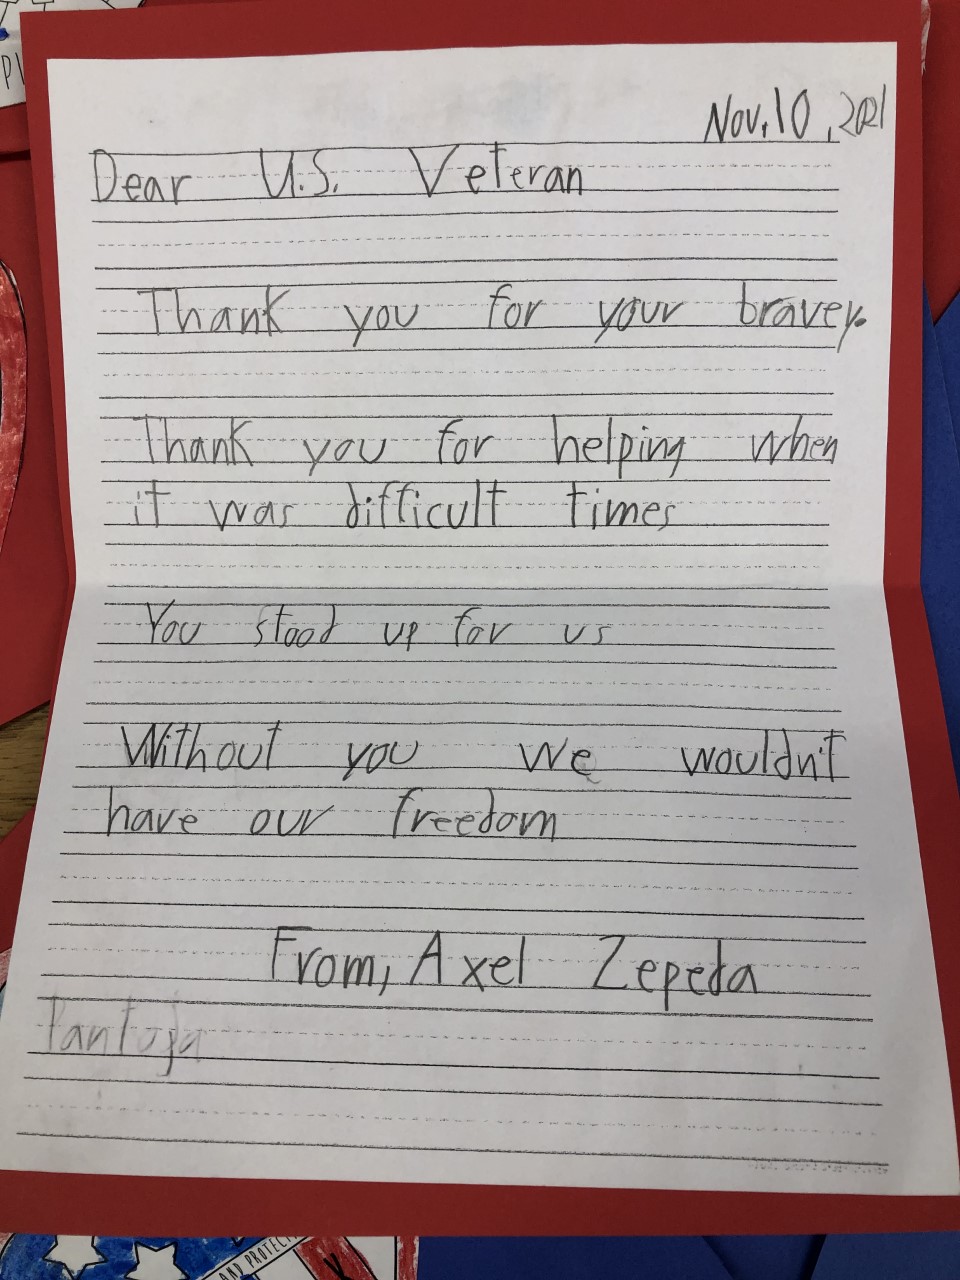 PI
Nov. 10, 2021
Dear U.S. Veteran
Thank you for your bravey.
Thank you for helping when
it was difficult times
You stood up for us
Without you we wouldn't
have our freedom
From, Axel Zepeda
Pantoja
AND PROTECT